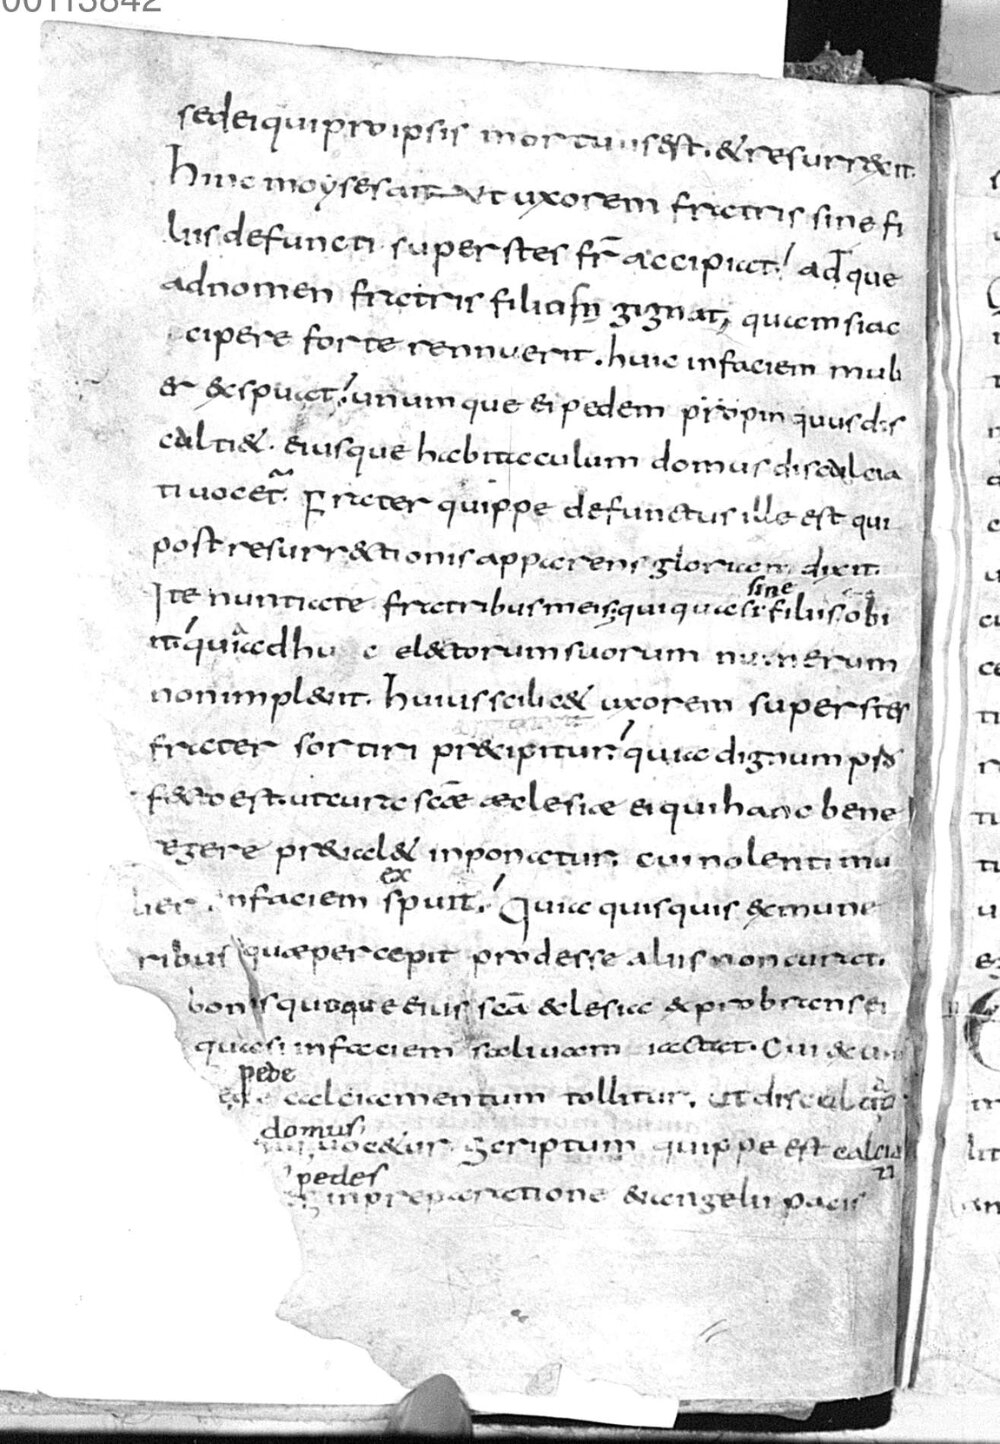 00113842
sed ei qui pro ipsis mortuus est. & resurrexit.
Hinc moyses ait ut uxorem fratris sine fi
liis defuncti superstes fr̄ accipiat. adque
ad nomen fratris filiu(m) gignat, quam si ac
cipere forte rennuerit. huic in faciem muli
er exspuat. unumque ei pedem propinquus dis
calti&. eiusque habitaculum domus discalcia
ti vocet. Frater quippe defunctus ille est qui
post resurrectionis apparens gloriam dixit.
Ite nuntiate fratribus meis, qui quasi sine filiis obi
it quia adhuc electorum suorum numerum
non implevit. huius scilic& uxorem superstes
frater sortiri præcipitur, quia dignum pro
fecto est. ut cura scāe æclesiæ ei qui hanc bene
regere præval& inponatur. cui nolenti mu
lier in faciem exspuit. Quia quisquis ex mune
ribus quæ percepit prodesse aliis non curat.
bonis quoque eius scā eclesia exprobrans ei
quasi in faciem salivam iactat. Cui & un
pede calciamentum tollitur. ut discalciati
domus voc&ur. Scriptum quippe est calcia
ti pedes in preparatione evangelii pacis